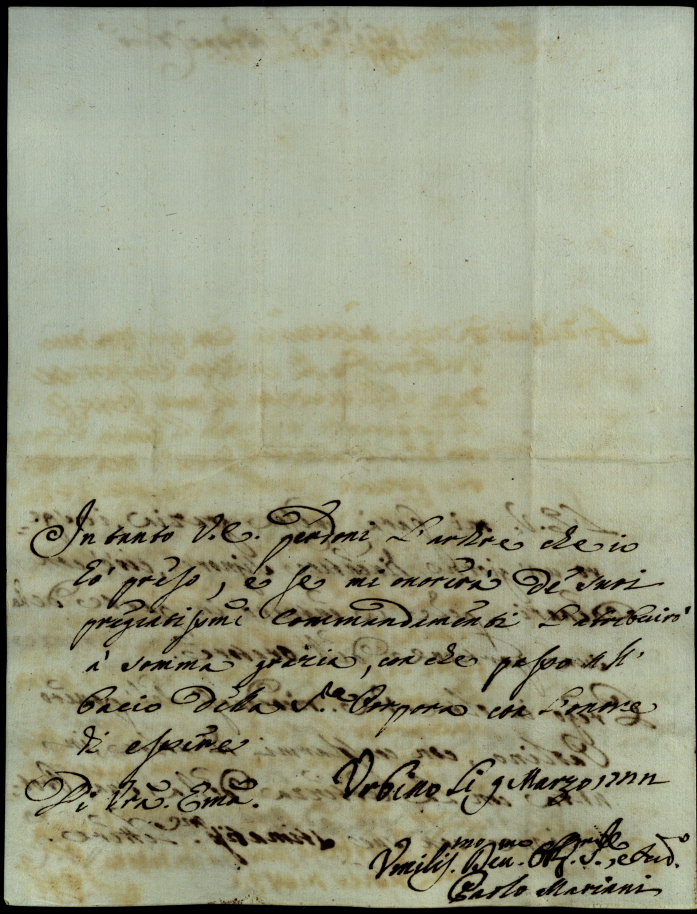 In tanto V.E. perdoni l'ardire che io
hò preso, e se mi onorerà de suoi
pregiatissimi commandamenti l'atribuirò
à somma grazia, con che passo al
bacio della S.ra Porpora con l'onore
di essere
Di Vra. Ema. Urbino li 9 Marzo
Umilis.mo Dev.mo Obl. S.re, e Sud.o
Carlo Mariani